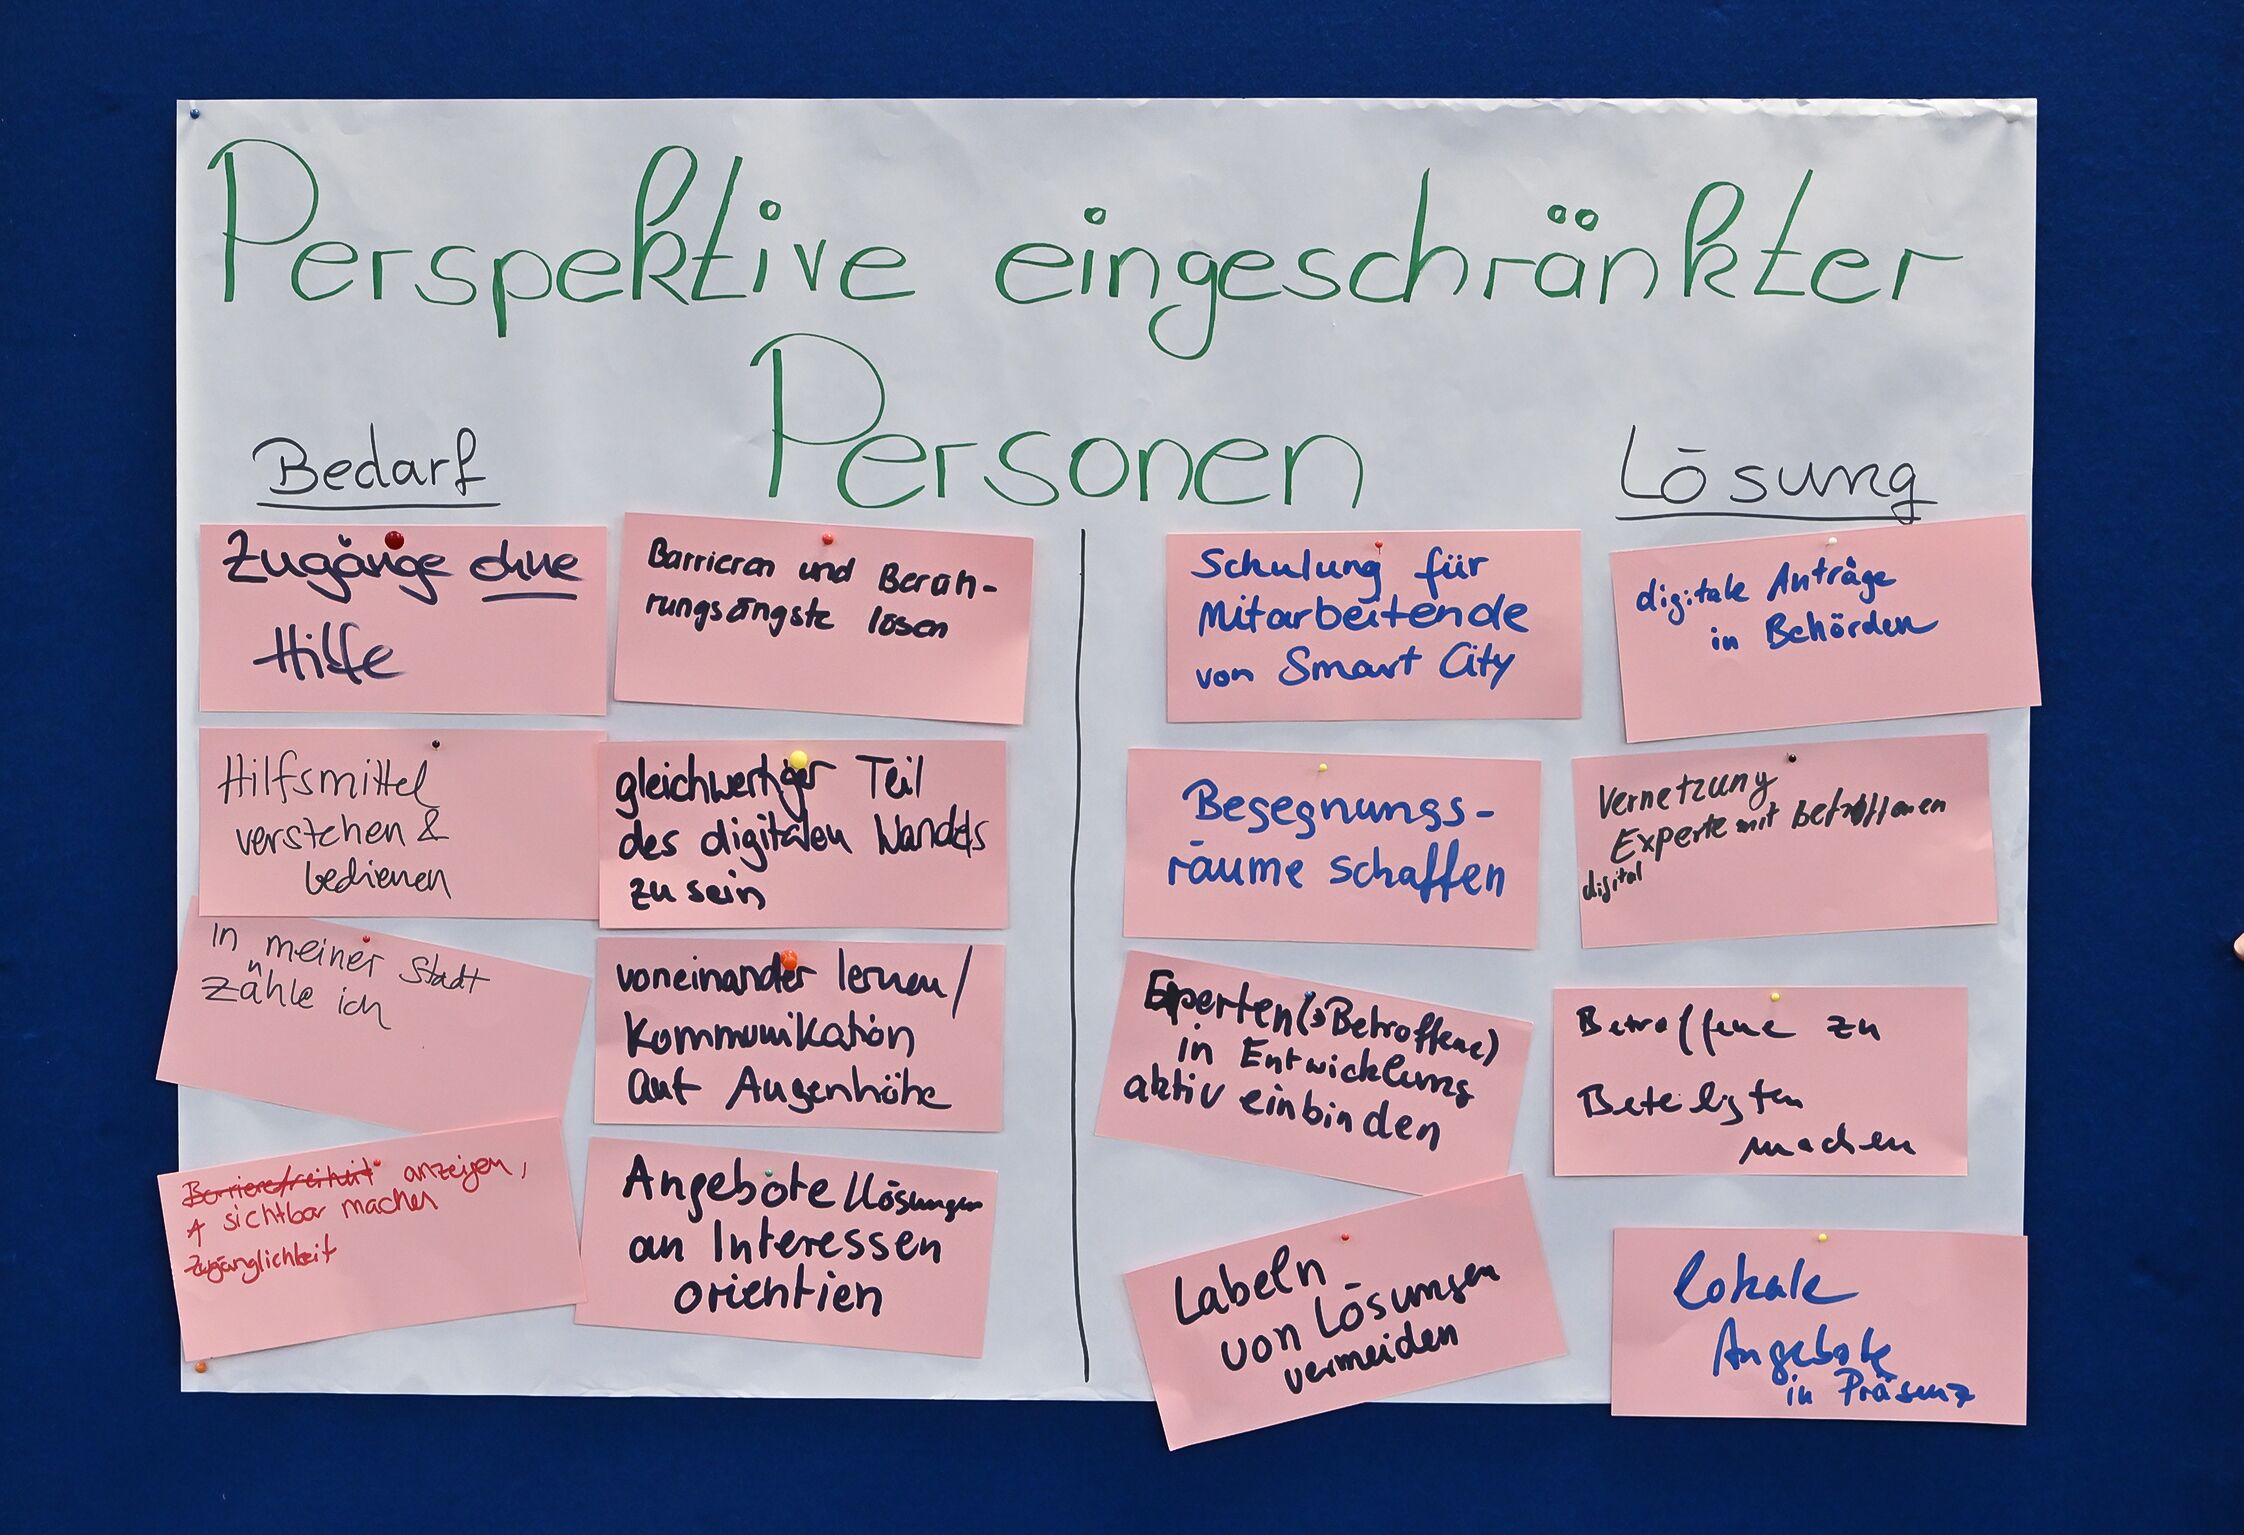 Perspektive eingeschränkter
Personen
Bedarf
Zugänge ohne
Hilfe
Barrieren und Berüh-
rungsängste lösen
Hilfsmittel
verstehen &
bedienen
gleichwertiger Teil
des digitalen Wandels
zu sein
in meiner Stadt
zähle ich
voneinander lernen/
Kommunikation
auf Augenhöhe
Barrierefreiheit anzeigen,
sichtbar machen
Zugänglichkeit
Angebote/Lösungen
an Interessen
orientien
Lösung
Schulung für
Mitarbeitende
von Smart City
digitale Anträge
in Behörden
Begegnungs-
räume schaffen
Vernetzung
Experte mit betroffenen
digital
Experten(→Betroffene)
in Entwicklung
aktiv einbinden
Betroffene zu
Beteiligten
machen
Labeln
von Lösungen
vermeiden
lokale
Angebote
in Präsenz